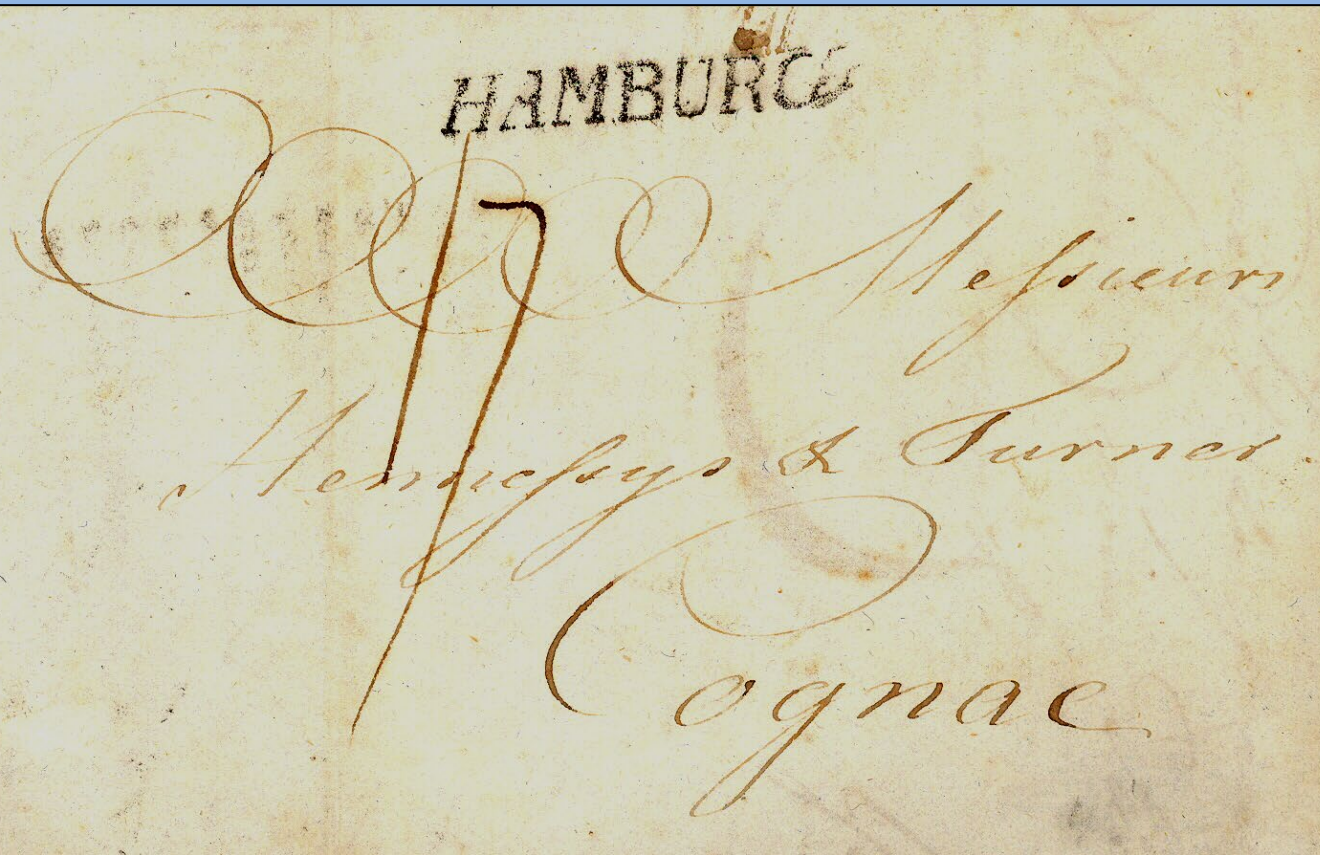 HAMBURG
17
Messieurs
Hennessys & Turner.
Cognac